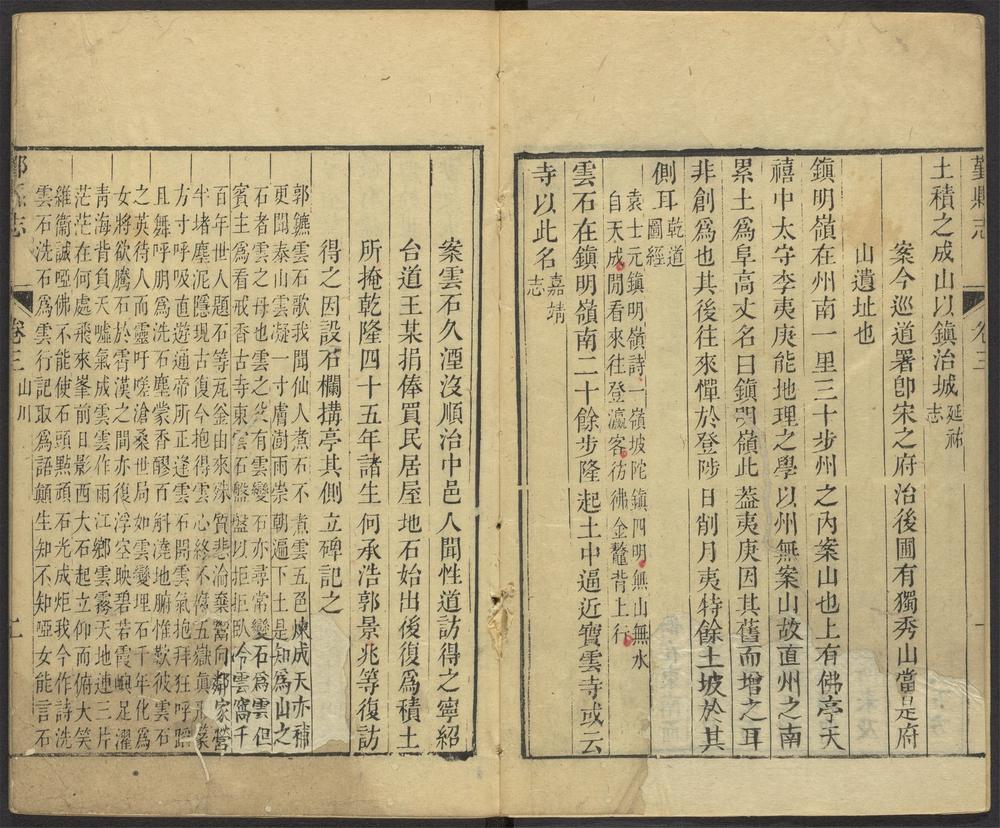 鄞縣志
卷三
一
土積之成山以鎮治城延祐志
案今巡道署卽宋之府治後圃有獨秀山當是府
山遺址也
鎮明嶺在州南一里三十步州之內案山也上有佛亭天
禧中太守李夷庚能地理之學以州無案山故直州之南
累土爲阜高丈名曰鎮明嶺此葢夷庚因其舊而增之耳
非創爲也其後往來憚於登陟日削月夷特餘土坡於其
側耳乾道圖經
袁士元鎮明嶺詩一嶺坡陀鎮四明無山無水
自天成閒看來往登瀛客彷彿金鼇背上行
雲石在鎮明嶺南二十餘步隆起土中逼近寶雲寺或云
寺以此名嘉靖志
案雲石久湮沒順治中邑人聞性道訪得之寧紹
台道王某捐俸買民居屋地石始出後復爲積土
所掩乾隆四十五年諸生何承浩郭景兆等復訪
得之因設石欄搆亭其側立碑記之
郭鑣雲石歌我聞仙人煮石不煮雲五色煉成天亦補
更聞泰山雲凝一寸膚澍雨崇朝遍下土是知爲山之
石者雲之母也雲之從有雲變石亦尋常變石爲雲但
賓主爲看戒香古寺東雲石盤盤以拒拒臥令雲窩千
百年世人題石等瓦釜由來殊質悲渝棄嚮向鄰家營
半堵塵泥隱現古復今抱得雲心終不　五嶽眞形篆
方寸呼吸直遊通帝所正逢雲石開雲氣抱拜狂呼蹈
且舞呼朋爲洗石塵蒙香醪百斛澆地腑惟歎彼雲石
之英待人而靈吁嗟滄桑世局如雲變埋石千年化爲
女將欲騰石於霄漢之間亦復浮空映碧若霞嶼足濯
靑海背負天噓氣成雲雲作雨江鄉雲霧天地連三片
茫茫在何處飛來峯前日影西大石起立仰而俯大笑
維衞誠啞佛不能使石頭點頑石光成炬我今作詩洗
雲石洗石爲雲行記取爲語顚生知不知啞女能言石
鄞縣志
卷三
山川
二